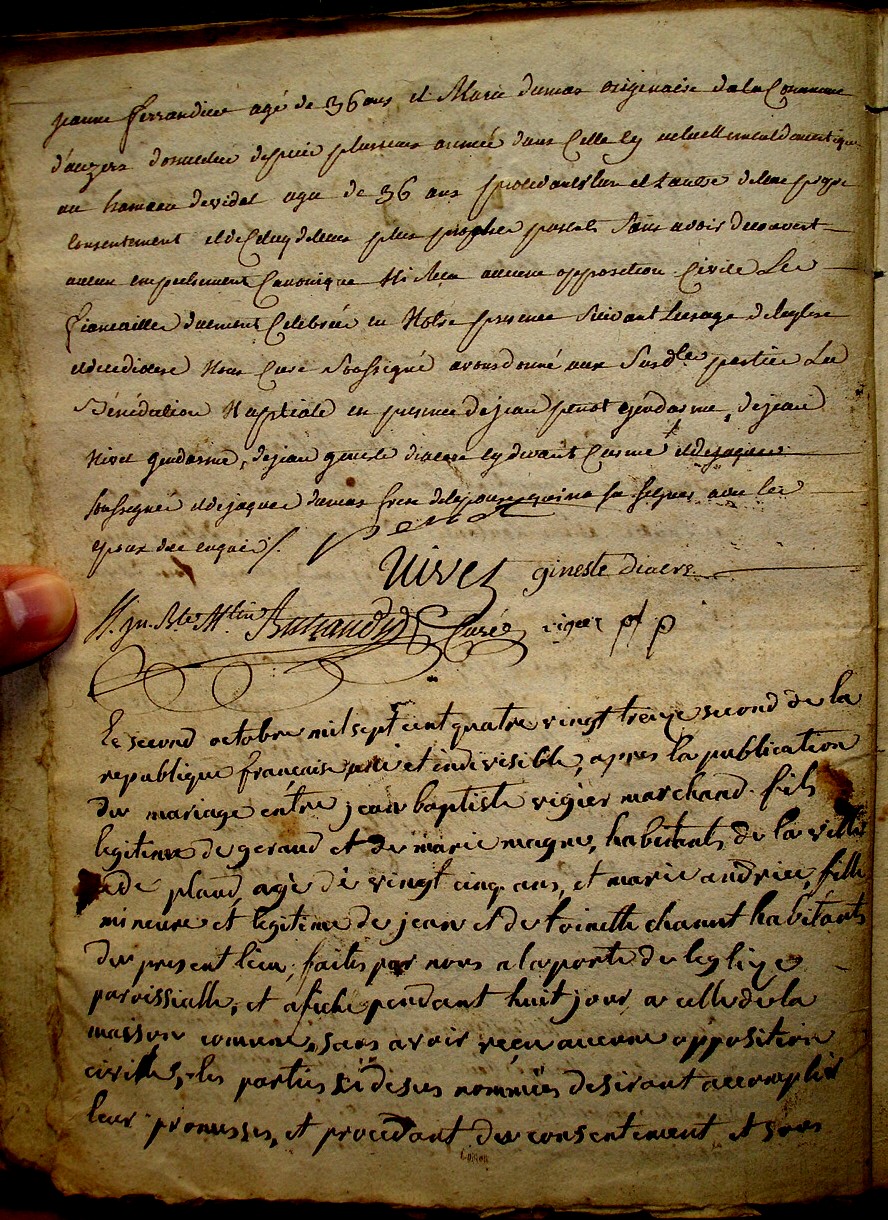 jeanne ferrandier agé de 36 ans et Marie dumas originaire de la Commune
d'auzers domiciliée depuis plusieurs année dans Celle cy actuellement domestique
au hameau de vidal agée de 36 ans procedants l'un et l'autre de leur propre
Consentement et de Celuy de leurs plus proches parents Sans avoir decouvert
aucun empechement Canonique Ni Reçu aucune opposition Civile Les
fiancailles duement Celebrée en Notre presence Suivant L'usage de l'eglise
et de ce diocese Nous Curé Soussigné avons donné aux Susdtes parties La
Bénédiction Nuptiale en presence de jean penot gendarme, de jean
Nivet gendarme, de jean gineste diacre cy devant Carme
Soussignes et de jaques dumas frere de l'epouse qui n'a su signer avec les
epoux de ce enquis
Nivet gineste diacre
Curé
Le second octobre mil sept cent quatre vingt treize second de la
republique francaise une et indivisible, apres la publication
du mariage entre jean baptiste vigier marchand fils
legitime de geraud et de marie magne, habitants de la ville
de plaud, agé de vingt cinq ans, et marie andrieu, fille
mineure et legitime de jean et de toinette chanut habitants
du present lieu, faites par nous a la porte de leglize
parroissialle, et afiché pendant huit jour a celle de la
maison comune, sans avoir reçu aucune opposition
civille, les parties ci desus nommées desirant accomplir
leur promesses, et procedant du consentement et sous